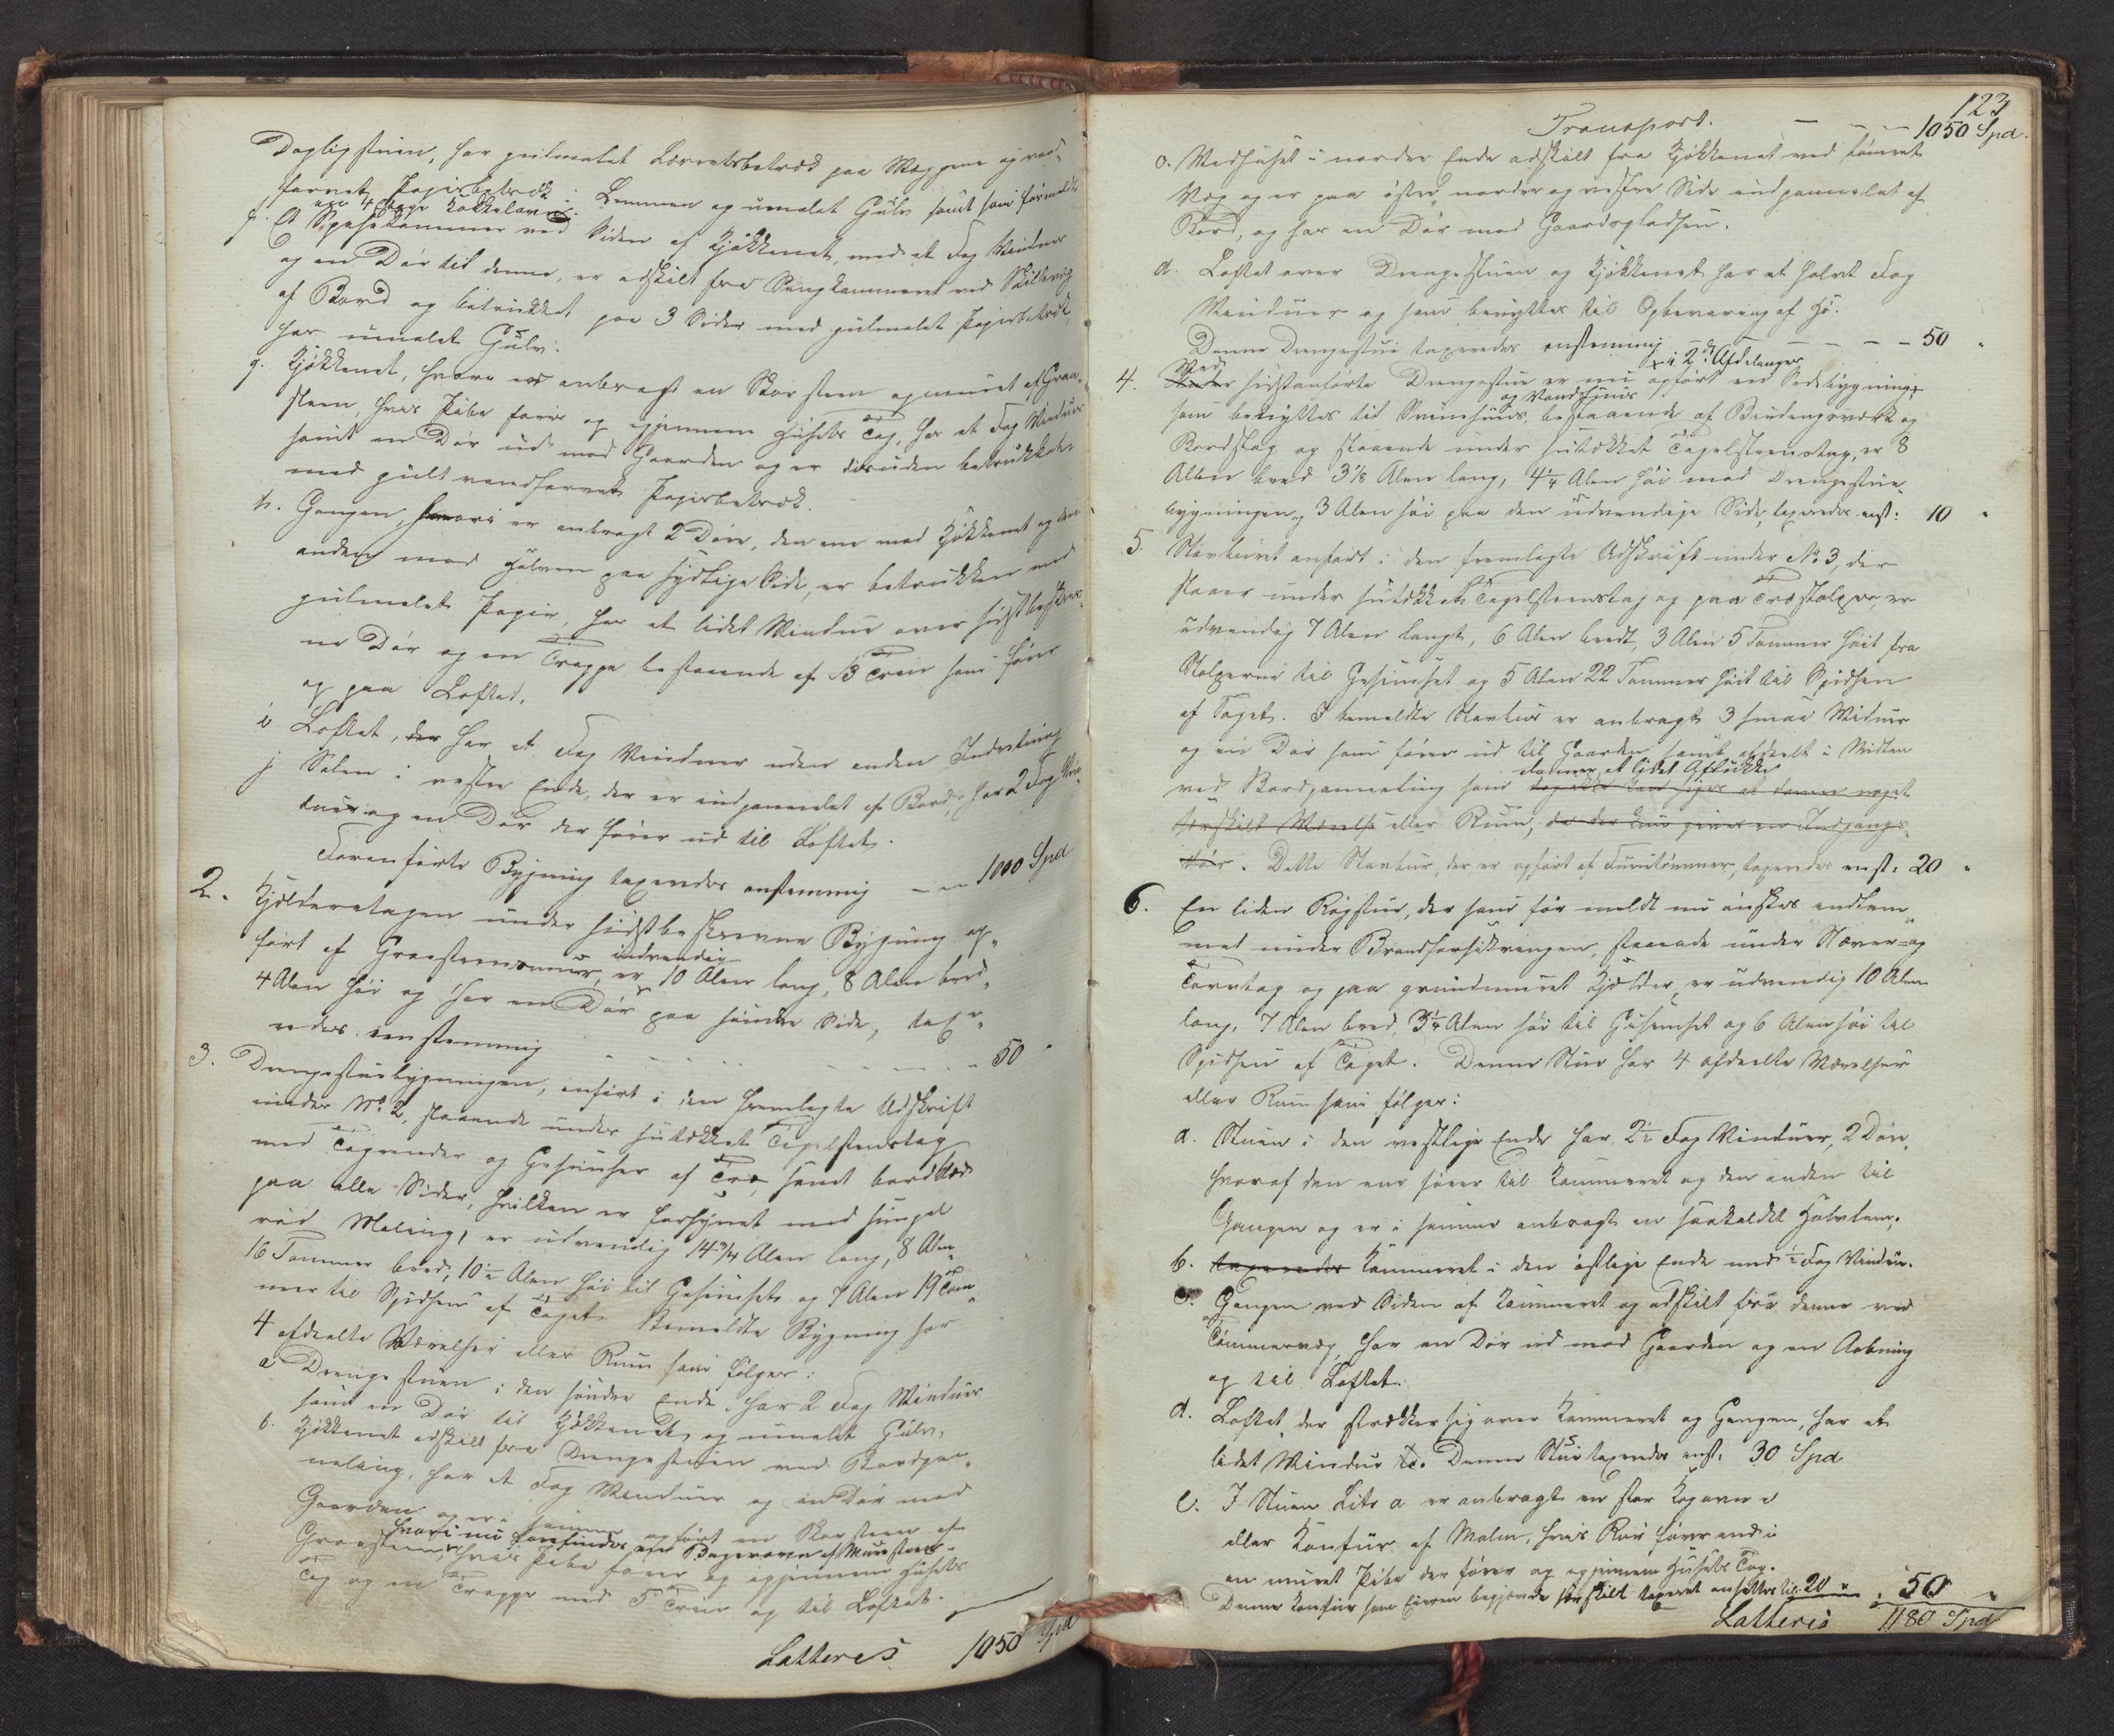 Dagligstuen, har guulmalet Lærretsbetræk paa Væggene og vand-
farvet Papirbetræk i Lemmen og umalet Gulv samt som formeldt
en 4 Etages Kakkelovn.
f. Et Spisekammer ved Siden af Kjøkkenet, med et Fag Vinduer
og en Dør til denne, er adskilt fra Sengkammeret ved Skillevæg
af Bord og betrukket paa 3 Sider med guulmalet Papirbetræk,
har umalet Gulv.
g. Kjøkkenet, hvori er anbragt en Skorsteen opmuret af Graa-
steen, hvis Pibe fører op igjennem Husets Tag, har et Fag Vinduer
samt en Dør ud mod Gaarden og er desuden betrukket
med guult vandfarvet Papirbetræk.
h. Gangen, hvori er anbragt 2 Døre, den ene mod Kjøkkenet og den
anden mod Haven paa sydlige Side, er betrukken med
guulmalet Papir, har et lidet Vindue over sidstbeskrev-
ne Dør og en Trappe bestaaende af 13 Trin som fører
op paa Loftet.
i Loftet, der har et Fag Vinduer uden anden Indretning
j Salen i vestre Ende, der er indpanelet af Bord, har 2 Fag Vin-
duer og en Dør der fører ud til Loftet.
Foranførte Bygning taxeredes enstemmig — — 1000 Spd
2. Kjelderetagen under sidstbeskrevne Bygning op-
ført af Graasteensmuur, er indvendig 10 Alen lang, 8 Alen bred,
4 Alen høi og har en Dør paa søndre Side, taxe-
redes eenstemmig — — — 50 "
3. Drengestuebygningen, anført i den fremlagte Udskrift
under No 2, staaende under hultækket Tegelsteenstag
med Tagrender og Gesimser af Træ, samt bordklædt
paa alle Sider, hvilken er forsynet med simpel
rød Maling, er udvendig 14 3/4 Alen lang, 8 Alen
16 Tommer bred, 10 1/2 Alen høi til Gesimset og 7 Alen 19 Tom-
mer til Spidsen af Taget. Bemeldte Bygning har
4 afdeelte Værelser eller Rum som følger:
a Drengestuen i den søndre Ende har 2 Fag Vinduer
samt en Dør til Kjøkkenet, og umalet Gulv,
b. Kjøkkenet adskilt fra Drengestuen ved Bordpan-
neling, har et Fag Vinduer og en Dør mod
Gaarden og er i samme opført en Skorsteen af
Graasteen, hvori nu forefindes en Bagerovn af Muursteen
hvis Pibe fører op igjennem Husets
Tag og en Trappe med 5 Trin op til Loftet.
Latteris 1050 Spd
123
Transport. — — — 1050 Spd.
c. Vedhuset i nordre Ende adskilt fra Kjøkkenet ved tømret
Væg og er paa østre, nordre og vestre Side indpannelet af
Bord, og har en Dør mod Gaardspladsen.
d. Loftet over Drengestuen og Kjøkkenet har et halvt Fag
Vinduer og som benyttes til Opbevaring af Hø.
Denne Drengestue taxeredes enstemmig — — — — 50 "
4. Ved sidstanførte Drengestue er nu opført en Sidebygning, i 2de Afdelinger
som benyttes til Svinehuus og Vandhuus, bestaaende af Bindingsværk og
Bordslag og staaende under hultækket Tegelsteenstag, er 8
Alen bred 3 1/8 Alen lang, 4 1/4 Alen høi mod Drengestue-
bygningen og 3 Alen høi paa den udvendige Side, taxeredes enst: 10 "
5. Stavburet anført i den fremlagte Udskrift under No 3, der
staaer under hultækket Tegelsteenstag og paa Træstolper, er
udvendig 7 Alen langt, 6 Alen bredt, 3 Alen 5 Tommer høit fra
Stolperne til Gesimset og 5 Alen 22 Tommer høit til Spidsen
af Taget. I bemeldte Stavbur er anbragt 3 smaa Vinduer
og en Dør som fører ud til Gaarden samt afdeelt i Midten
ved Bordpanneling som danner et lidet Aflukke
dog ikke kan siges at danne noget
særskilt Værelse eller Rum, da der kun gives en Indgangs-
dør. Dette Stavbur, der er opført af Furutømmer, taxeredes enst. 20 "
6. En liden Røgstue, der som før meldt nu ønskes indlem-
met under Brandforsikringen, staaende under Næver- og
Torvtag og paa grundmuret Kjelder, er udvendig 10 Alen
lang, 7 Alen bred, 3 1/4 Alen høi til Gesimset og 6 Alen høi til
Spidsen af Taget. Denne Stue har 4 afdeelte Værelser
eller Rum som følger:
a. Stuen i den vestlige Ende har 2 1/2 Fag Vinduer, 2 Døre,
hvoraf den ene fører til Kammeret og den anden til
Gangen og er i samme anbragt en saakaldt Halvlem.
b. taxeredes Kammeret i den østlige Ende med 1/2 Fag Vinduer.
c. Gangen ved Siden af Kammeret og adskilt fra denne ved
Tømmervæg, har en Dør ud mod Gaarden og en Aabning
op til Loftet.
d. Loftet der strækker sig over Kammeret og Gangen, har et
lidet Vindue. Denne Stue taxeredes enst. 30 Spd
e. I Stuen Litr a er anbragt en stor Kogeovn
eller Komfur af Malm, hvis Rør fører ind i
en muret Pibe der fører op igjennem Husets Tag.
Denne Komfur som Eieren begjærede særskilt taxeret ansættes til 20 " 50 "
Latteris 1180 Spd